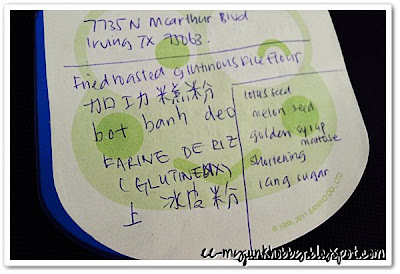 7735 N Mcarthur Blvd
Irving TX 75063.
Fried roasted glutinous rice flour
加工糕粉
bot banh deo
FARINE DE RIZ
(GLUTINEUX)
上 冰皮粉
lotus seed
melon seed
golden syrup
maltose
shortening
icing sugar
© 1988, 2011 SANRIO CO., LTD.
cc-mypunkhobby.blogspot.com